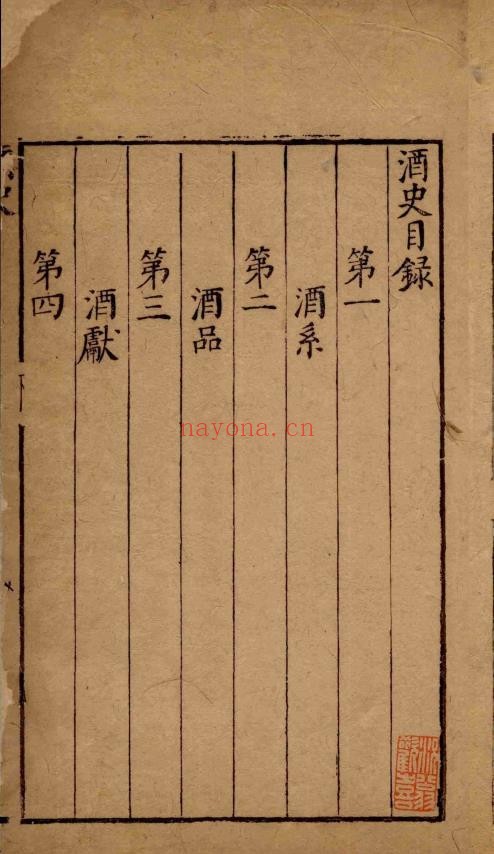 酒史目録
第一
酒系
第二
酒品
第三
酒獻
第四
nayona.cn